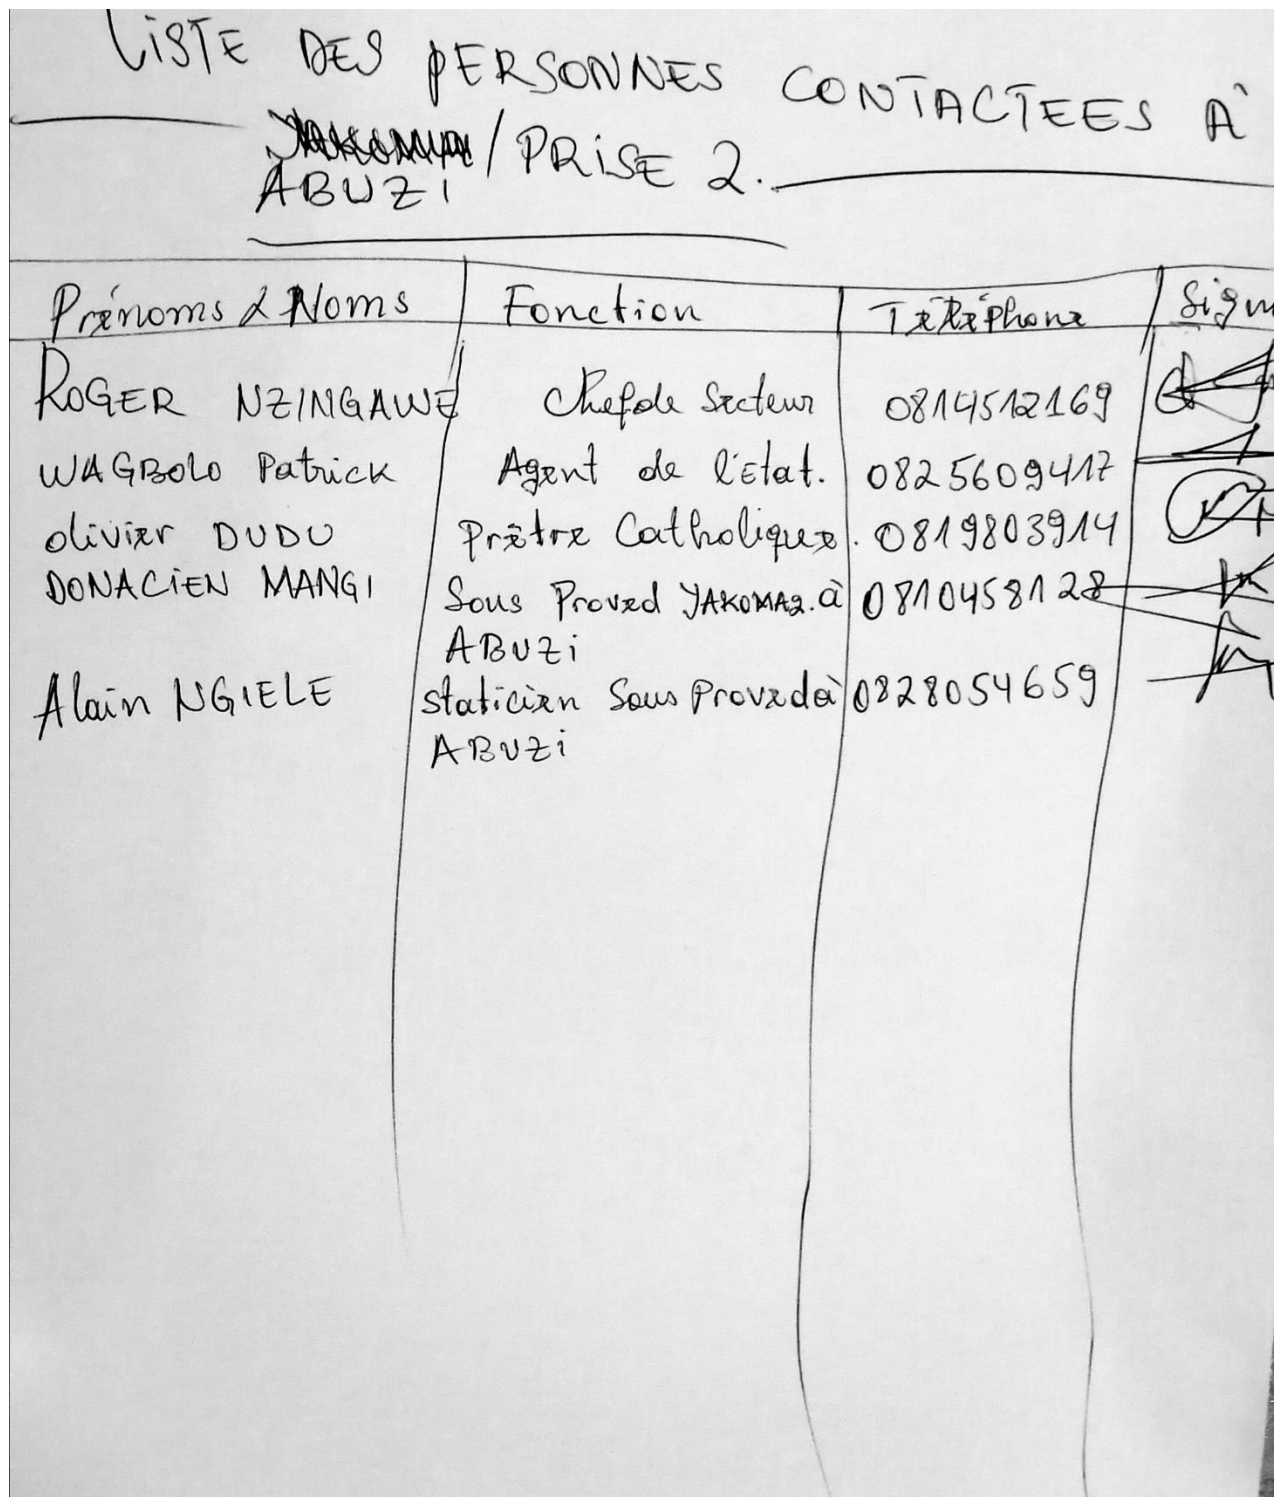 LISTE DES PERSONNES CONTACTEES À
/ PRISE 2.
ABUZI
Prénoms & Noms Fonction Téléphone Sign
ROGER NZINGAWE Chef de Secteur 0814512169
WAGBOLO Patrick Agent de l'Etat. 0825609417
Olivier DUDU Prêtre Catholique. 0819803914
DONACIEN MANGI Sous Proved YAKOMA2. à 0810458128
ABUZi
Alain NGIELE staticien Sous Proved à 0828054659
ABUZi